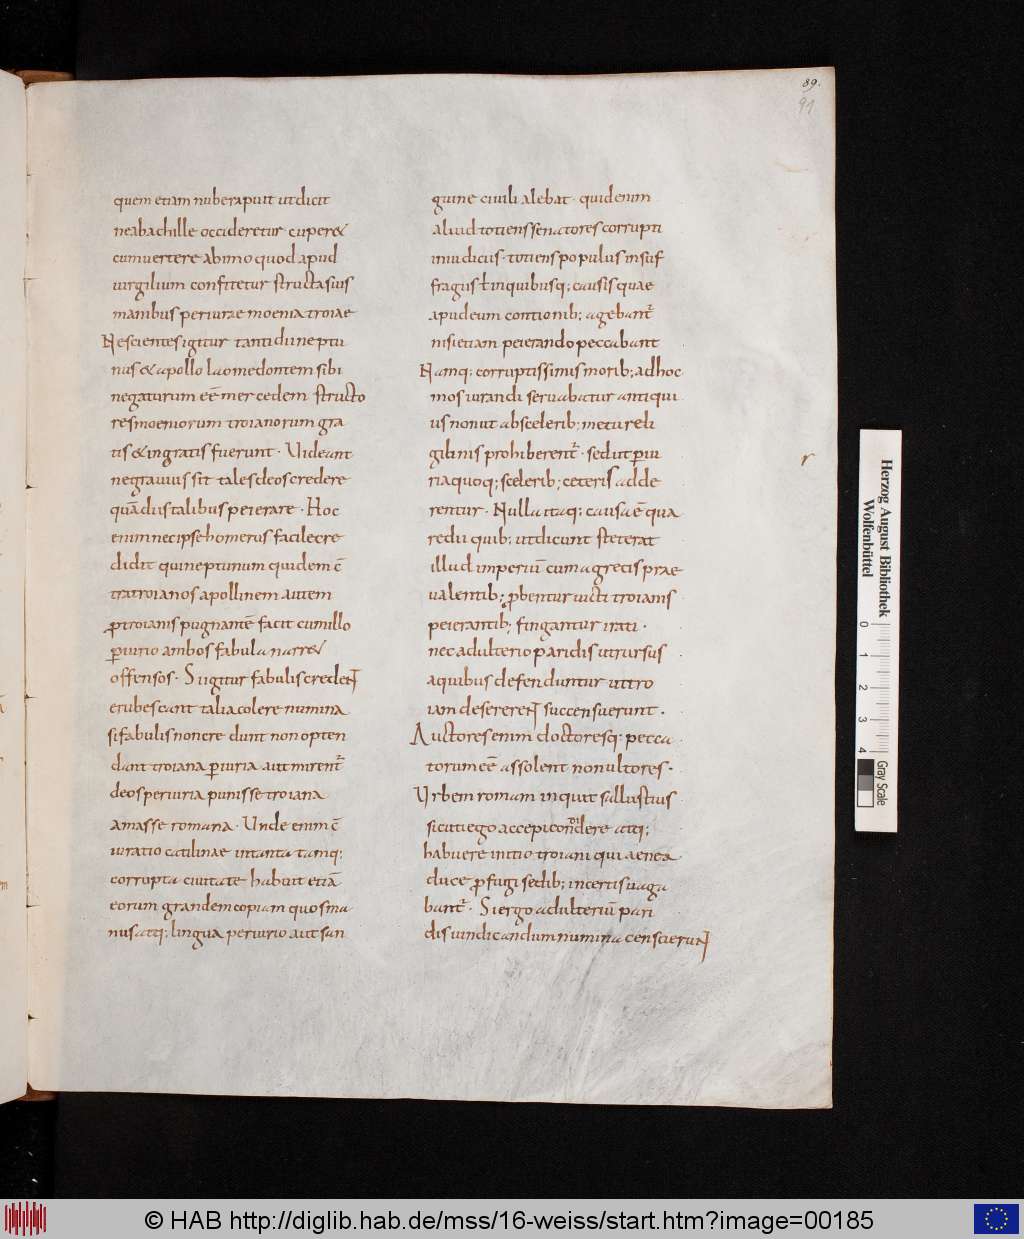 89.
91
quem etiam nube rapuit ut dicit
ne ab achille occideretur cuper&
cum uertere ab imo quod apud
uirgilium confitetur structa suis
manibus periurae moenia troiae
Nescientes igitur tanti dii neptu
nus & apollo laomedontem sibi
negaturum eē mercedem structo
res moeniorum troianorum gra
tis & ingratis fuerunt · Uideant
ne grauius sit tales deos credere
quā diis talibus peierare · Hoc
enim nec ipse homerus facile cre
didit qui neptunum quidem c̄
tra troianos apollinem autem
ꝓ troianis pugnantē facit cum illo
ꝑiurio ambos fabula narr&
offensos · Si igitur fabulis credent
erubescant talia colere numina
si fabulis non credunt non opten
dant troiana ꝑiuria aut mirent᷑
deos periuria punisse troiana
amasse romana · Unde enim c̄
iuratio catilinae in tanta tamq;
corrupta ciuitate habuit etiā
eorum grandem copiam quos ma
nus atq; lingua periurio aut san
guine ciuili alebat · quid enim
aliud totiens senatores corrupti
in iudicus · totiens populus in suf
fragiis ł in quibusq; causis quae
apud eum contionib; agebant᷑
nisi etiam peierando peccabant
Namq; corruptissimis morib; ad hoc
mos iurandi seruabatur antiqui
us non ut ab scelerib; metu reli
gionis prohiberent᷑ · sed ut ꝑiu
ria quoq; scelerib; ceteris adde
rentur · Nulla itaq; causa ē qua
re dii quib; ut dicunt steterat
illud imperiū cum a grecis prae
ualentib; ꝓbentur uicti troianis
peierantib; fingantur irati ·
nec adulterio paridis ut rursus
a quibus defenduntur ut tro
iam desererent succensuerunt ·
Auctores enim doctoresq; pecca
torum eē assolent non ultores ·
Urbem romam inquit sallustius
sicuti ego accepi condere atq;
habuere initio troiani qui aenea
duce ꝓfugi sedib; incertis uaga
bant᷑ · Si ergo adulteriū pari
dis uindicandum numina censcierunt
r
Herzog August Bibliothek
Wolfenbüttel
0
1
2
3
4
Gray Scale
© HAB http://diglib.hab.de/mss/16-weiss/start.htm?image=00185